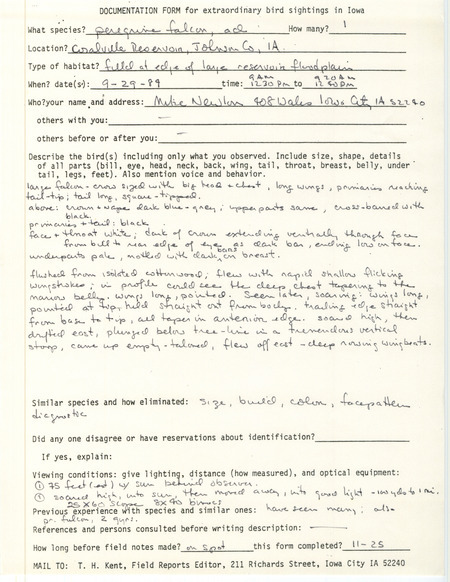 DOCUMENTATION FORM for extraordinary bird sightings in Iowa
What species? peregrine falcon, ad How many? 1
Location? Coralville Reservoir, Johnson Co, IA.
Type of habitat? field at edge of large reservoir floodplain
9 AM 9 20 AM
When? date(s): 9-29-89 time: 12:30 PM to 12:40 PM
Who? your name and address: Mike Newlon 408 Wales Iowa City, IA 52240
others with you: —
others before or after you: —
Describe the bird(s) including only what you observed. Include size, shape, details
of all parts (bill, eye, head, neck, back, wing, tail, throat, breast, belly, under
tail, legs, feet). Also mention voice and behavior.
large falcon - crow sized with big head + chest, long wings, primaries reaching
tail-tip; tail long, square-tipped.
above: crown + nape dark blue-grey; upperparts same, cross-barred with
black.
primaries + tail: black
face + throat white; dark of crown extending ventrally through face
from bill to rear edge of eye as dark bar, ending low on face.
bars
underparts pale, mottled with dark on breast.
flushed from isolated cottonwood; flew with rapid shallow flicking
wingstrokes; in profile could see the deep chest tapering to the
narrow belly, wings long, pointed. Seen later, soaring: wings long,
pointed at tip, held straight out from body. trailing edge straight
from base to tip, all taper in anterior edge. soared high, then
drifted east, plunged below tree-line in a tremendous vertical
stoop, came up empty-taloned, flew off east - deep rowing wingbeats.
Similar species and how eliminated: size, build, color, face pattern
diagnostic
Did any one disagree or have reservations about identification?
If yes, explain:
Viewing conditions: give lighting, distance (how measured), and optical equipment:
① 75 feet (est) w/ sun behind observer.
② soared high, into sun, then moved away, into good light - 100 yds to 1 mi.
25 X 60 scope 8X40 binocs
Previous experience with species and similar ones: have seen many; also
pr. falcon, 2 gyrs.
References and persons consulted before writing description: —
How long before field notes made? on spot this form completed? 11-25
MAIL TO: T. H. Kent, Field Reports Editor, 211 Richards Street, Iowa City IA 52240